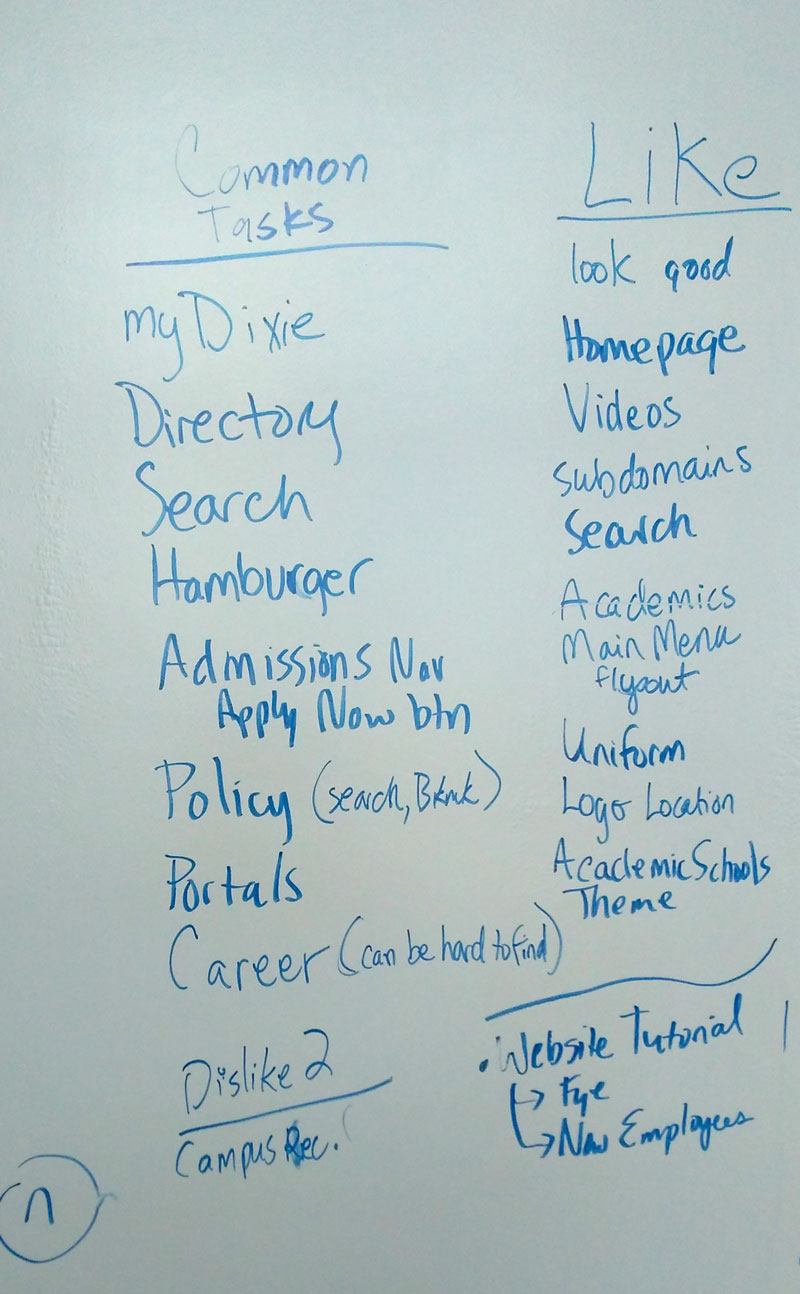 Common
Tasks
my Dixie
Directory
Search
Hamburger
Admissions Nav
Apply Now btn
Policy (search, Bkmk)
Portals
Career (can be hard to find)
Dislike 2
Campus Rec.
n
Like
look good
Homepage
Videos
subdomains
Search
Academics
Main Menu
flyout
Uniform
Logo Location
Academic Schools
Theme
• Website Tutorial
→ Fye
→ New Employees